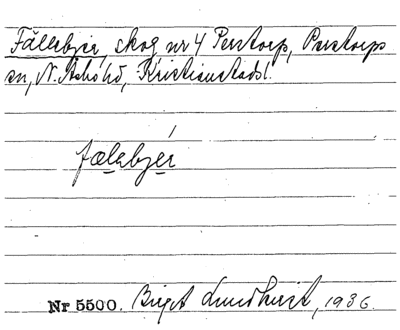 Fällebjer, skog nr 4 Perstorp, Perstorps
sn, N. Åsbo hd, Kristianstads l.
fælebjér
Nr 5500. Birgit Lundkvist, 1936.